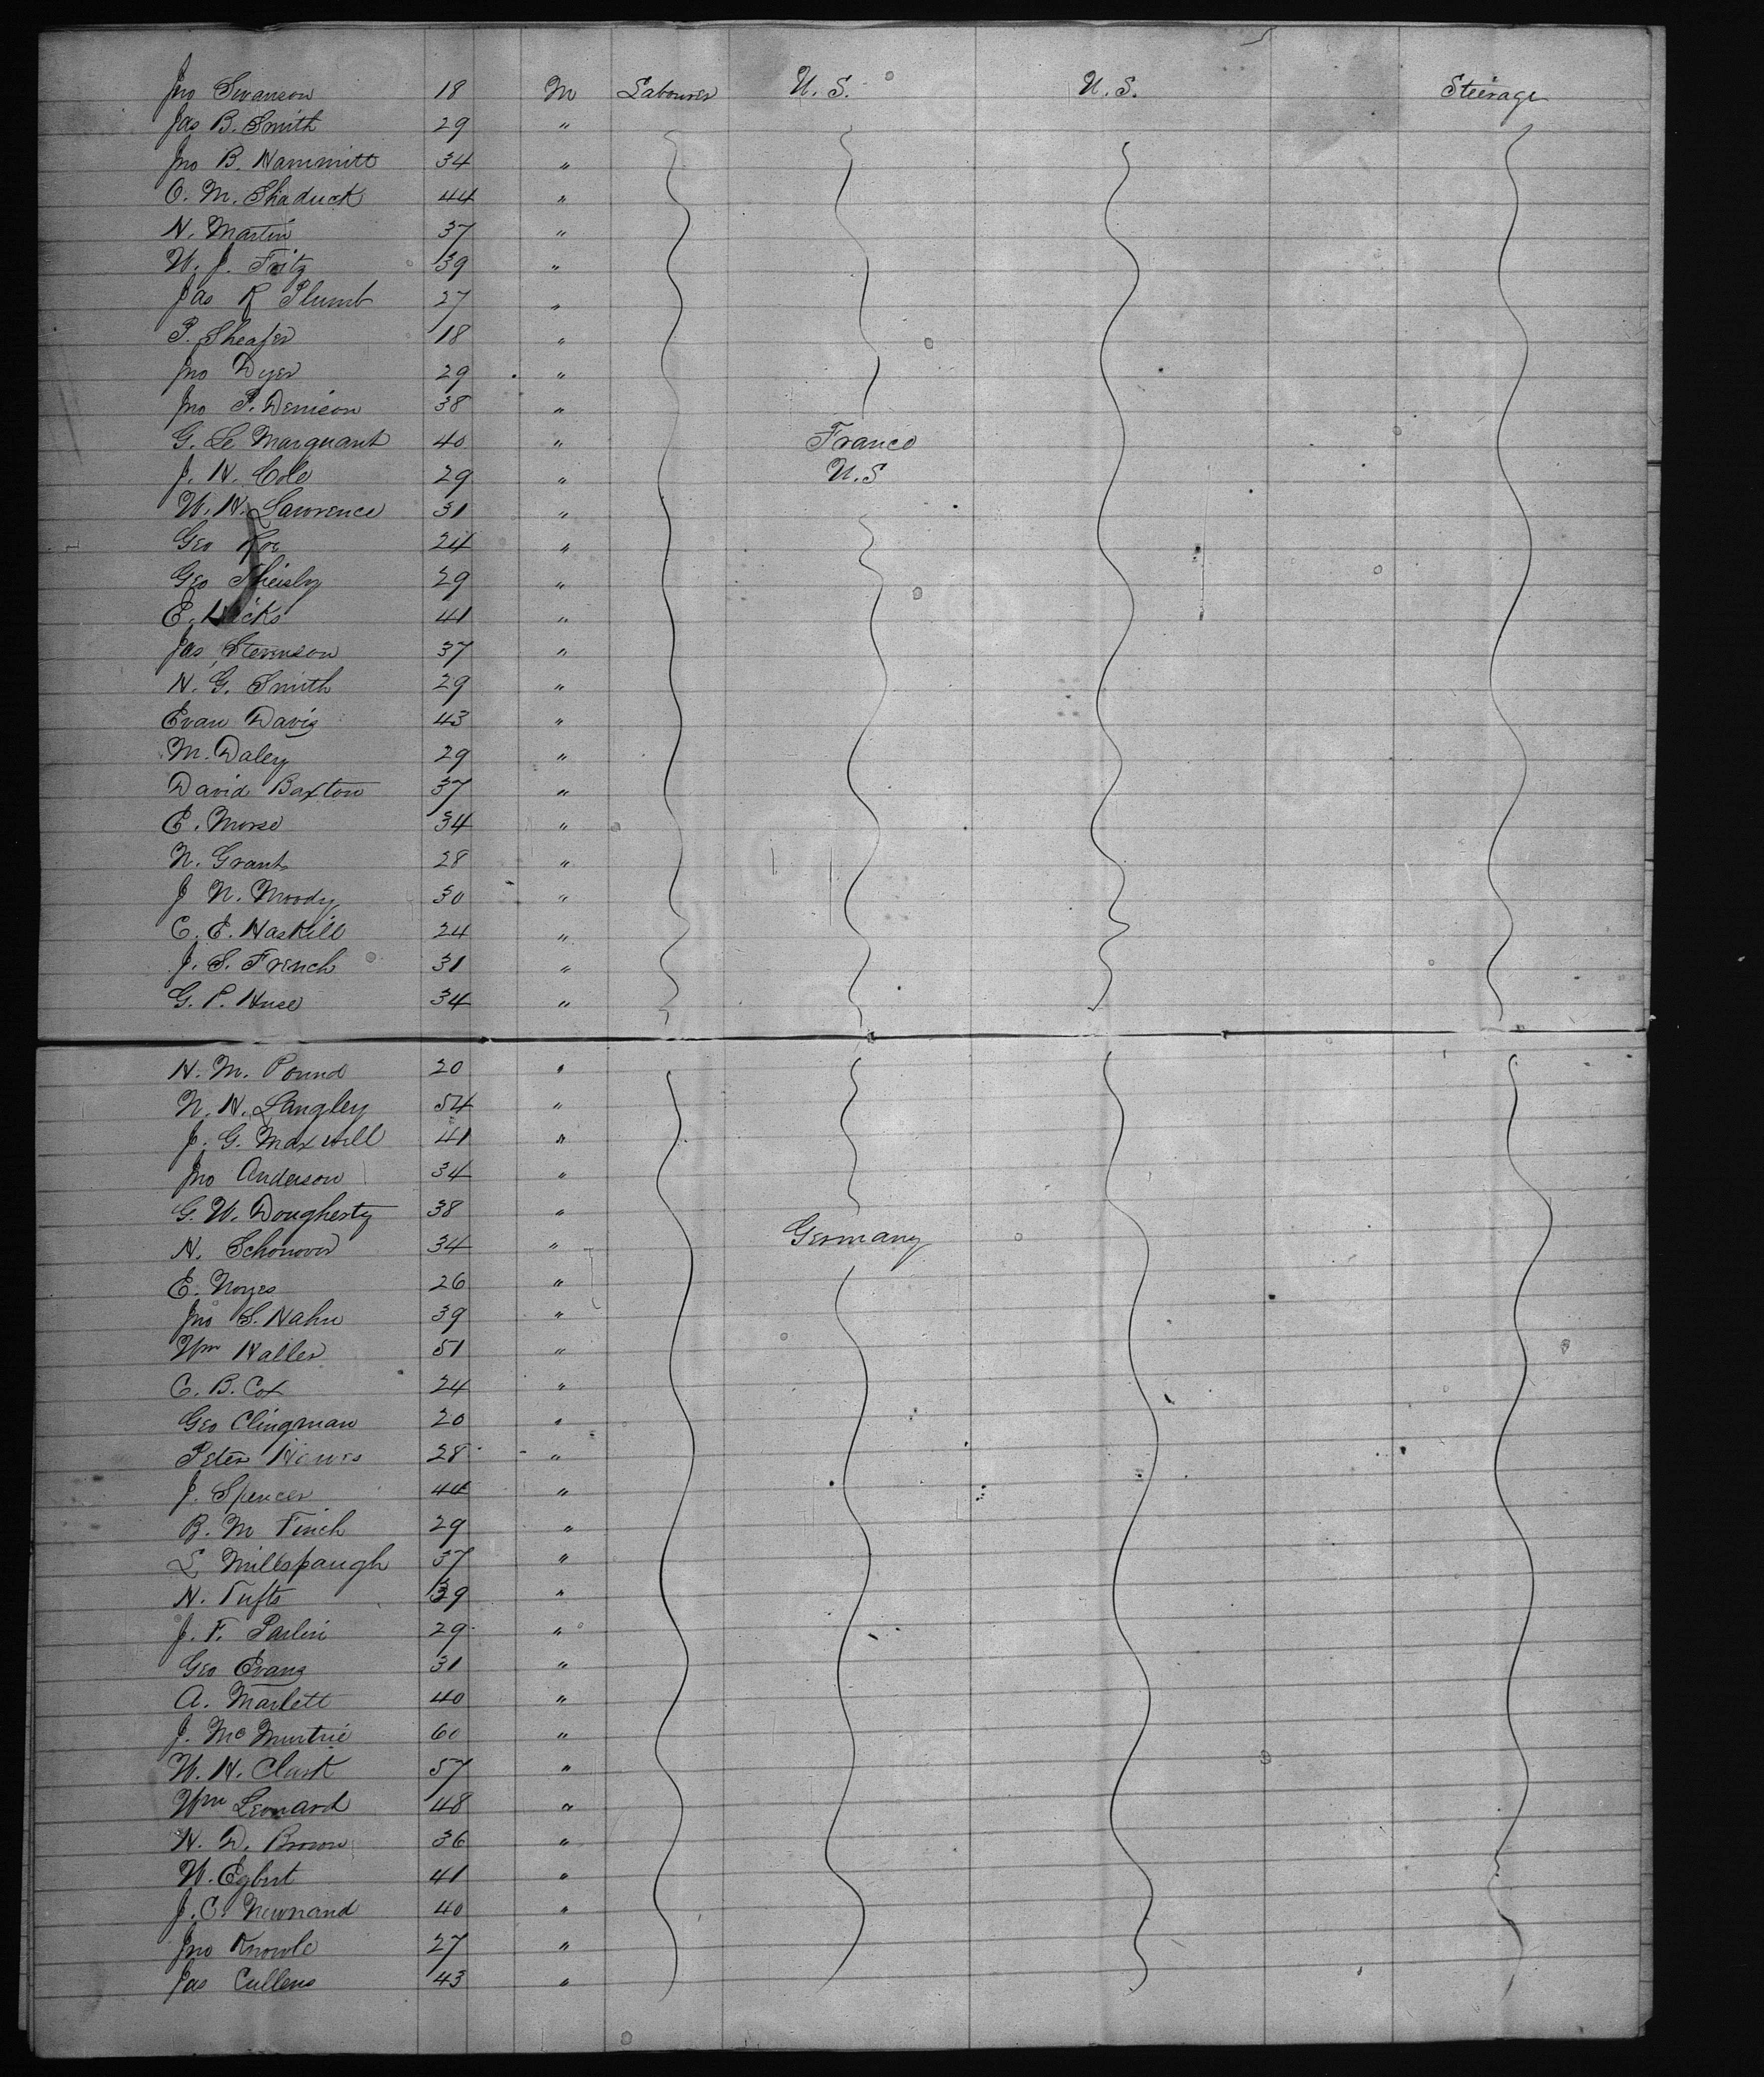 Jno Swanson 18 M Labourer U.S. U.S. Steerage
Jas B. Smith 29 "
Jno B. Hammitt 34 "
O. M. Shaduck 44 "
H. Martin 37 "
W. J. Fritz 39 "
Jas R Plumb 27 "
P. Sheafer 18 "
Jno Dyer 29 "
Jno P. Denison 38 "
G. Le Marquant 40 " France
J. H. Cole 29 " U.S
W. H. Lawrence 31 "
Geo 24 "
Geo 29 "
E. Hicks 41 "
Jas Stevenson 37 "
H. G. Smith 29 "
Evan Davis 43 "
M. Daley 29 "
David Baxton 37 "
E. Morse 34 "
N. Grant 28 "
J N. Moody 30 "
C. E. Haskill 24 "
J. S. French 31 "
G. P. Huse 34 "
H. M. Pound 20 "
N. H. Langley 54 "
J. G. Maxwell 41 "
Jno Anderson 34 "
G. W. Dougherty 38 "
H. Schonover 34 " Germany
E. Noyes 26 "
Jno S. Hahn 39 "
Wm Haller 51 "
C. B. Cox 24 "
Geo Clingman 20 "
Peter Hawes 28 "
J. Spencer 44 "
B. M Finch 29 "
L Millspaugh 37 "
H. Tufts 39 "
J. F. Parlin 29 "
Geo Evans 31 "
A. Marlett 40 "
J. McMurtrie 60 "
W. H. Clark 57 "
Wm Leonard 48 "
H. D. Brown 36 "
W. Egbert 41 "
J. C. Newnand 40 "
Jno Knowle 27 "
Jas Cullens 43 "